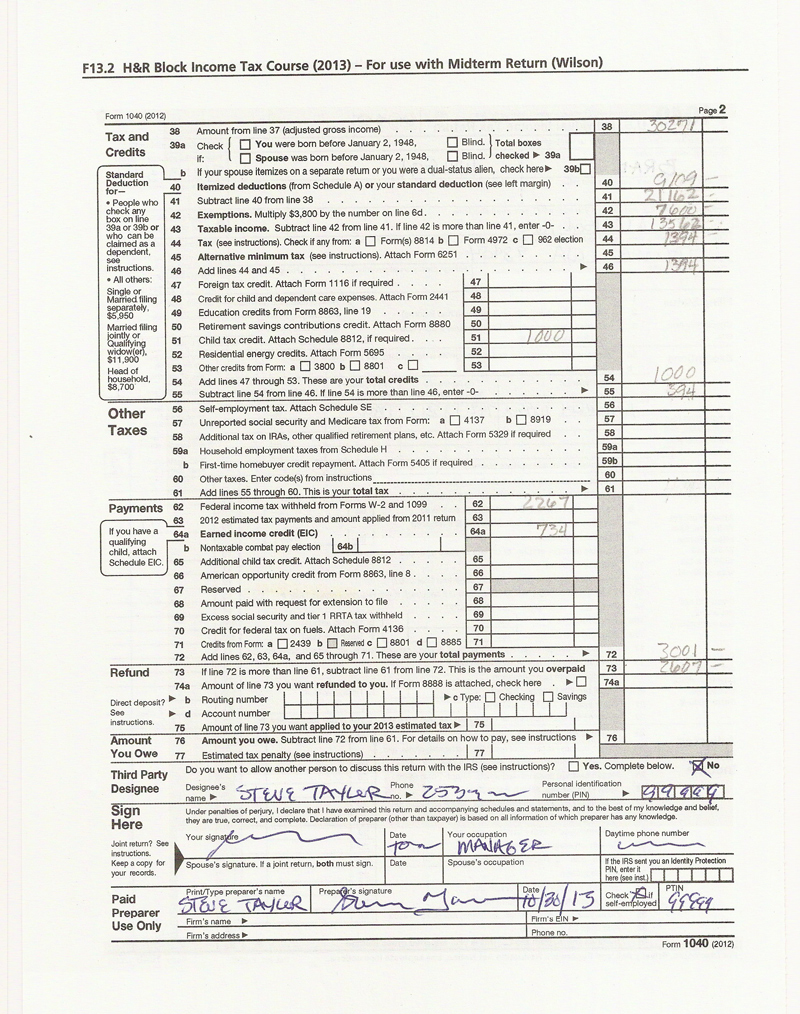 F13.2 H&R Block Income Tax Course (2013) – For use with Midterm Return (Wilson)
Form 1040 (2012) Page 2
Tax and Credits
38 Amount from line 37 (adjusted gross income) 38 30271 –
39a Check if: You were born before January 2, 1948, Blind. Total boxes
Spouse was born before January 2, 1948, Blind. checked ▶ 39a
b If your spouse itemizes on a separate return or you were a dual-status alien, check here ▶ 39b
40 Itemized deductions (from Schedule A) or your standard deduction (see left margin) 40 9109 –
41 Subtract line 40 from line 38 41 21162 –
42 Exemptions. Multiply $3,800 by the number on line 6d. 42 7600 –
43 Taxable income. Subtract line 42 from line 41. If line 42 is more than line 41, enter -0- 43 13562 –
44 Tax (see instructions). Check if any from: a Form(s) 8814 b Form 4972 c 962 election 44 1394 –
45 Alternative minimum tax (see instructions). Attach Form 6251 45
46 Add lines 44 and 45 ▶ 46 1394 –
Standard Deduction for—
• People who check any box on line 39a or 39b or who can be claimed as a dependent, see instructions.
• All others:
Single or Married filing separately, $5,950
Married filing jointly or Qualifying widow(er), $11,900
Head of household, $8,700
47 Foreign tax credit. Attach Form 1116 if required 47
48 Credit for child and dependent care expenses. Attach Form 2441 48
49 Education credits from Form 8863, line 19 49
50 Retirement savings contributions credit. Attach Form 8880 50
51 Child tax credit. Attach Schedule 8812, if required 51 1000
52 Residential energy credits. Attach Form 5695 52
53 Other credits from Form: a 3800 b 8801 c 53
54 Add lines 47 through 53. These are your total credits 54 1000
55 Subtract line 54 from line 46. If line 54 is more than line 46, enter -0- ▶ 55 394 –
Other Taxes
56 Self-employment tax. Attach Schedule SE 56
57 Unreported social security and Medicare tax from Form: a 4137 b 8919 57
58 Additional tax on IRAs, other qualified retirement plans, etc. Attach Form 5329 if required 58
59a Household employment taxes from Schedule H 59a
b First-time homebuyer credit repayment. Attach Form 5405 if required 59b
60 Other taxes. Enter code(s) from instructions 60
61 Add lines 55 through 60. This is your total tax ▶ 61
Payments
62 Federal income tax withheld from Forms W-2 and 1099 62 2267
63 2012 estimated tax payments and amount applied from 2011 return 63
If you have a qualifying child, attach Schedule EIC.
64a Earned income credit (EIC) 64a 734
b Nontaxable combat pay election 64b
65 Additional child tax credit. Attach Schedule 8812 65
66 American opportunity credit from Form 8863, line 8 66
67 Reserved 67
68 Amount paid with request for extension to file 68
69 Excess social security and tier 1 RRTA tax withheld 69
70 Credit for federal tax on fuels. Attach Form 4136 70
71 Credits from Form: a 2439 b Reserved c 8801 d 8885 71
72 Add lines 62, 63, 64a, and 65 through 71. These are your total payments ▶ 72 3001 –
Refund
73 If line 72 is more than line 61, subtract line 61 from line 72. This is the amount you overpaid 73 2607 –
74a Amount of line 73 you want refunded to you. If Form 8888 is attached, check here ▶ 74a
Direct deposit? See instructions.
▶ b Routing number ▶ c Type: Checking Savings
▶ d Account number
75 Amount of line 73 you want applied to your 2013 estimated tax ▶ 75
Amount You Owe
76 Amount you owe. Subtract line 72 from line 61. For details on how to pay, see instructions ▶ 76
77 Estimated tax penalty (see instructions) 77
Third Party Designee
Do you want to allow another person to discuss this return with the IRS (see instructions)? Yes. Complete below. No
Designee's name ▶ STEVE TAYLER Phone no. ▶ Personal identification number (PIN) ▶ 99999
Sign Here
Under penalties of perjury, I declare that I have examined this return and accompanying schedules and statements, and to the best of my knowledge and belief,
they are true, correct, and complete. Declaration of preparer (other than taxpayer) is based on all information of which preparer has any knowledge.
Joint return? See instructions. Keep a copy for your records.
Your signature Date Your occupation MANAGER Daytime phone number
Spouse's signature. If a joint return, both must sign. Date Spouse's occupation If the IRS sent you an Identity Protection PIN, enter it here (see inst.)
Paid Preparer Use Only
Print/Type preparer's name STEVE TAYLER Preparer's signature Date 10/30/13 Check if self-employed PTIN 99999
Firm's name ▶ Firm's EIN ▶
Firm's address ▶ Phone no.
Form 1040 (2012)